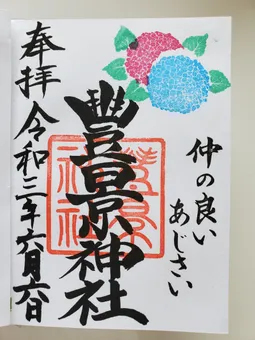 仲の良い
あじさい
豊景神社
奉拝
令和三年六月六日